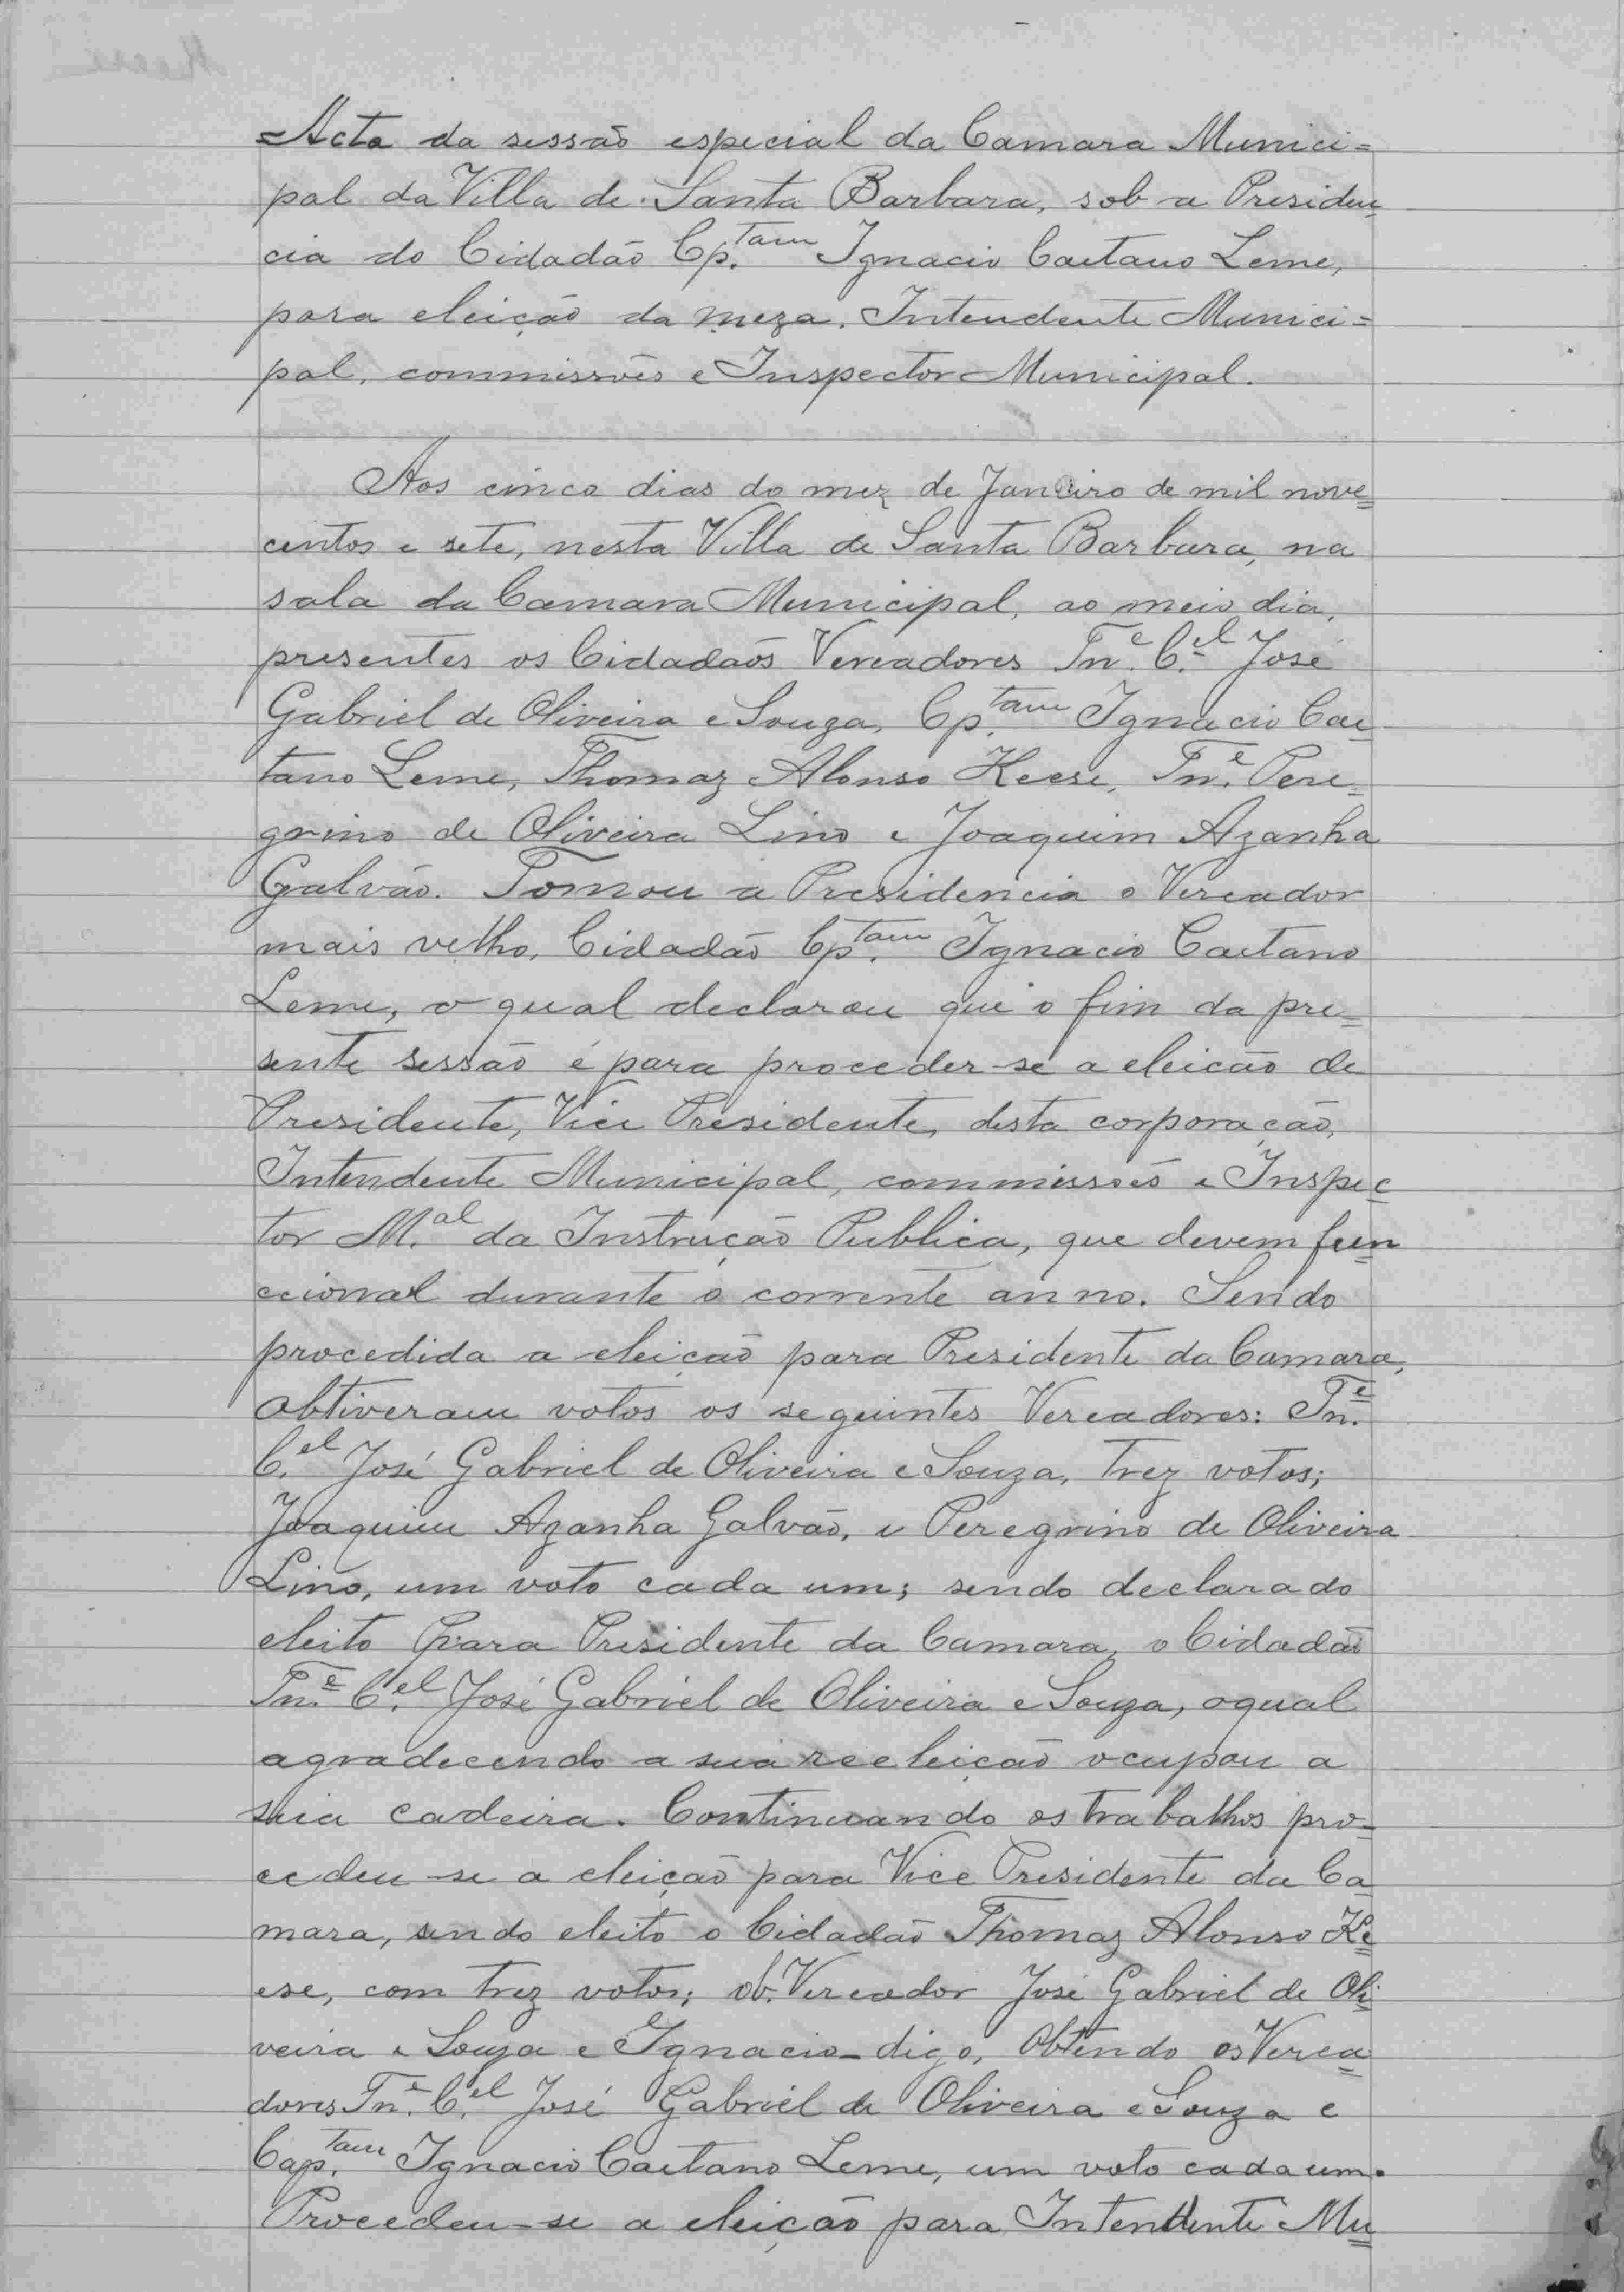 Acta da sessão especial da Camara Munici=
pal da Villa de Santa Barbara, sob a Presiden
cia do Cidadão Cp.tam Ignacio Caetano Leme,
para eleição da meza. Intendente Munici=
pal, commissões e Inspector Municipal.
Aos cinco dias do mez de Janeiro de mil nove=
centos e sete, nesta Villa de Santa Barbara, na
sala da Camara Municipal, ao meio dia,
presentes os Cidadaõs Vereadores Tn.e C.el José
Gabriel de Oliveira e Souza, Cp.tam Ignacio Cae
tano Leme, Thomaz Alonso Keese, Tn.e Pere-
grino de Oliveira Lino e Joaquim Azanha
Galvão. Tomou a Presidencia o Vereador
mais velho, Cidadão Cp.tam Ignacio Caetano
Leme, o qual declarou que o fim da pre=
sente sessão é para proceder-se a eleicão de
Presidente, Vice Presidente, desta corporação,
Intendente Municipal, commissoẽs e Inspec
tor M.al da Instrucção Publica, que devem fun
ccional durante o corrente anno. Sendo
procedida a eleição para Presidente da Camara,
obtiveram votos os seguintes Vereadores: Tn.e
C.el José Gabriel de Oliveira e Souza, trez votos;
Joaquim Azanha Galvão, e Peregrino de Oliveira
Lino, um voto cada um; sendo declarado
eleito para Presidente da Camara, o Cidadão
Tn.e C.el José Gabriel de Oliveira e Souza, oqual
agradecendo a sua reeleição occupou a
sua cadeira. Continuando os trabalhos pro=
cedeu-se a eleição para Vice Presidente da Ca
mara, sendo eleito o Cidadão Thomaz Alonso Ke
ese, com trez votos; ob. Vereador José Gabriel de Oli
veira e Souza e Ignacio-digo, Obtendo os Verea
dores Tn.e C.el José Gabriel de Oliveira e Souza e
Cap.tam Ignacio Caetano Leme, um voto cada um.
Procedeu-se a eleição para Intendente Mu